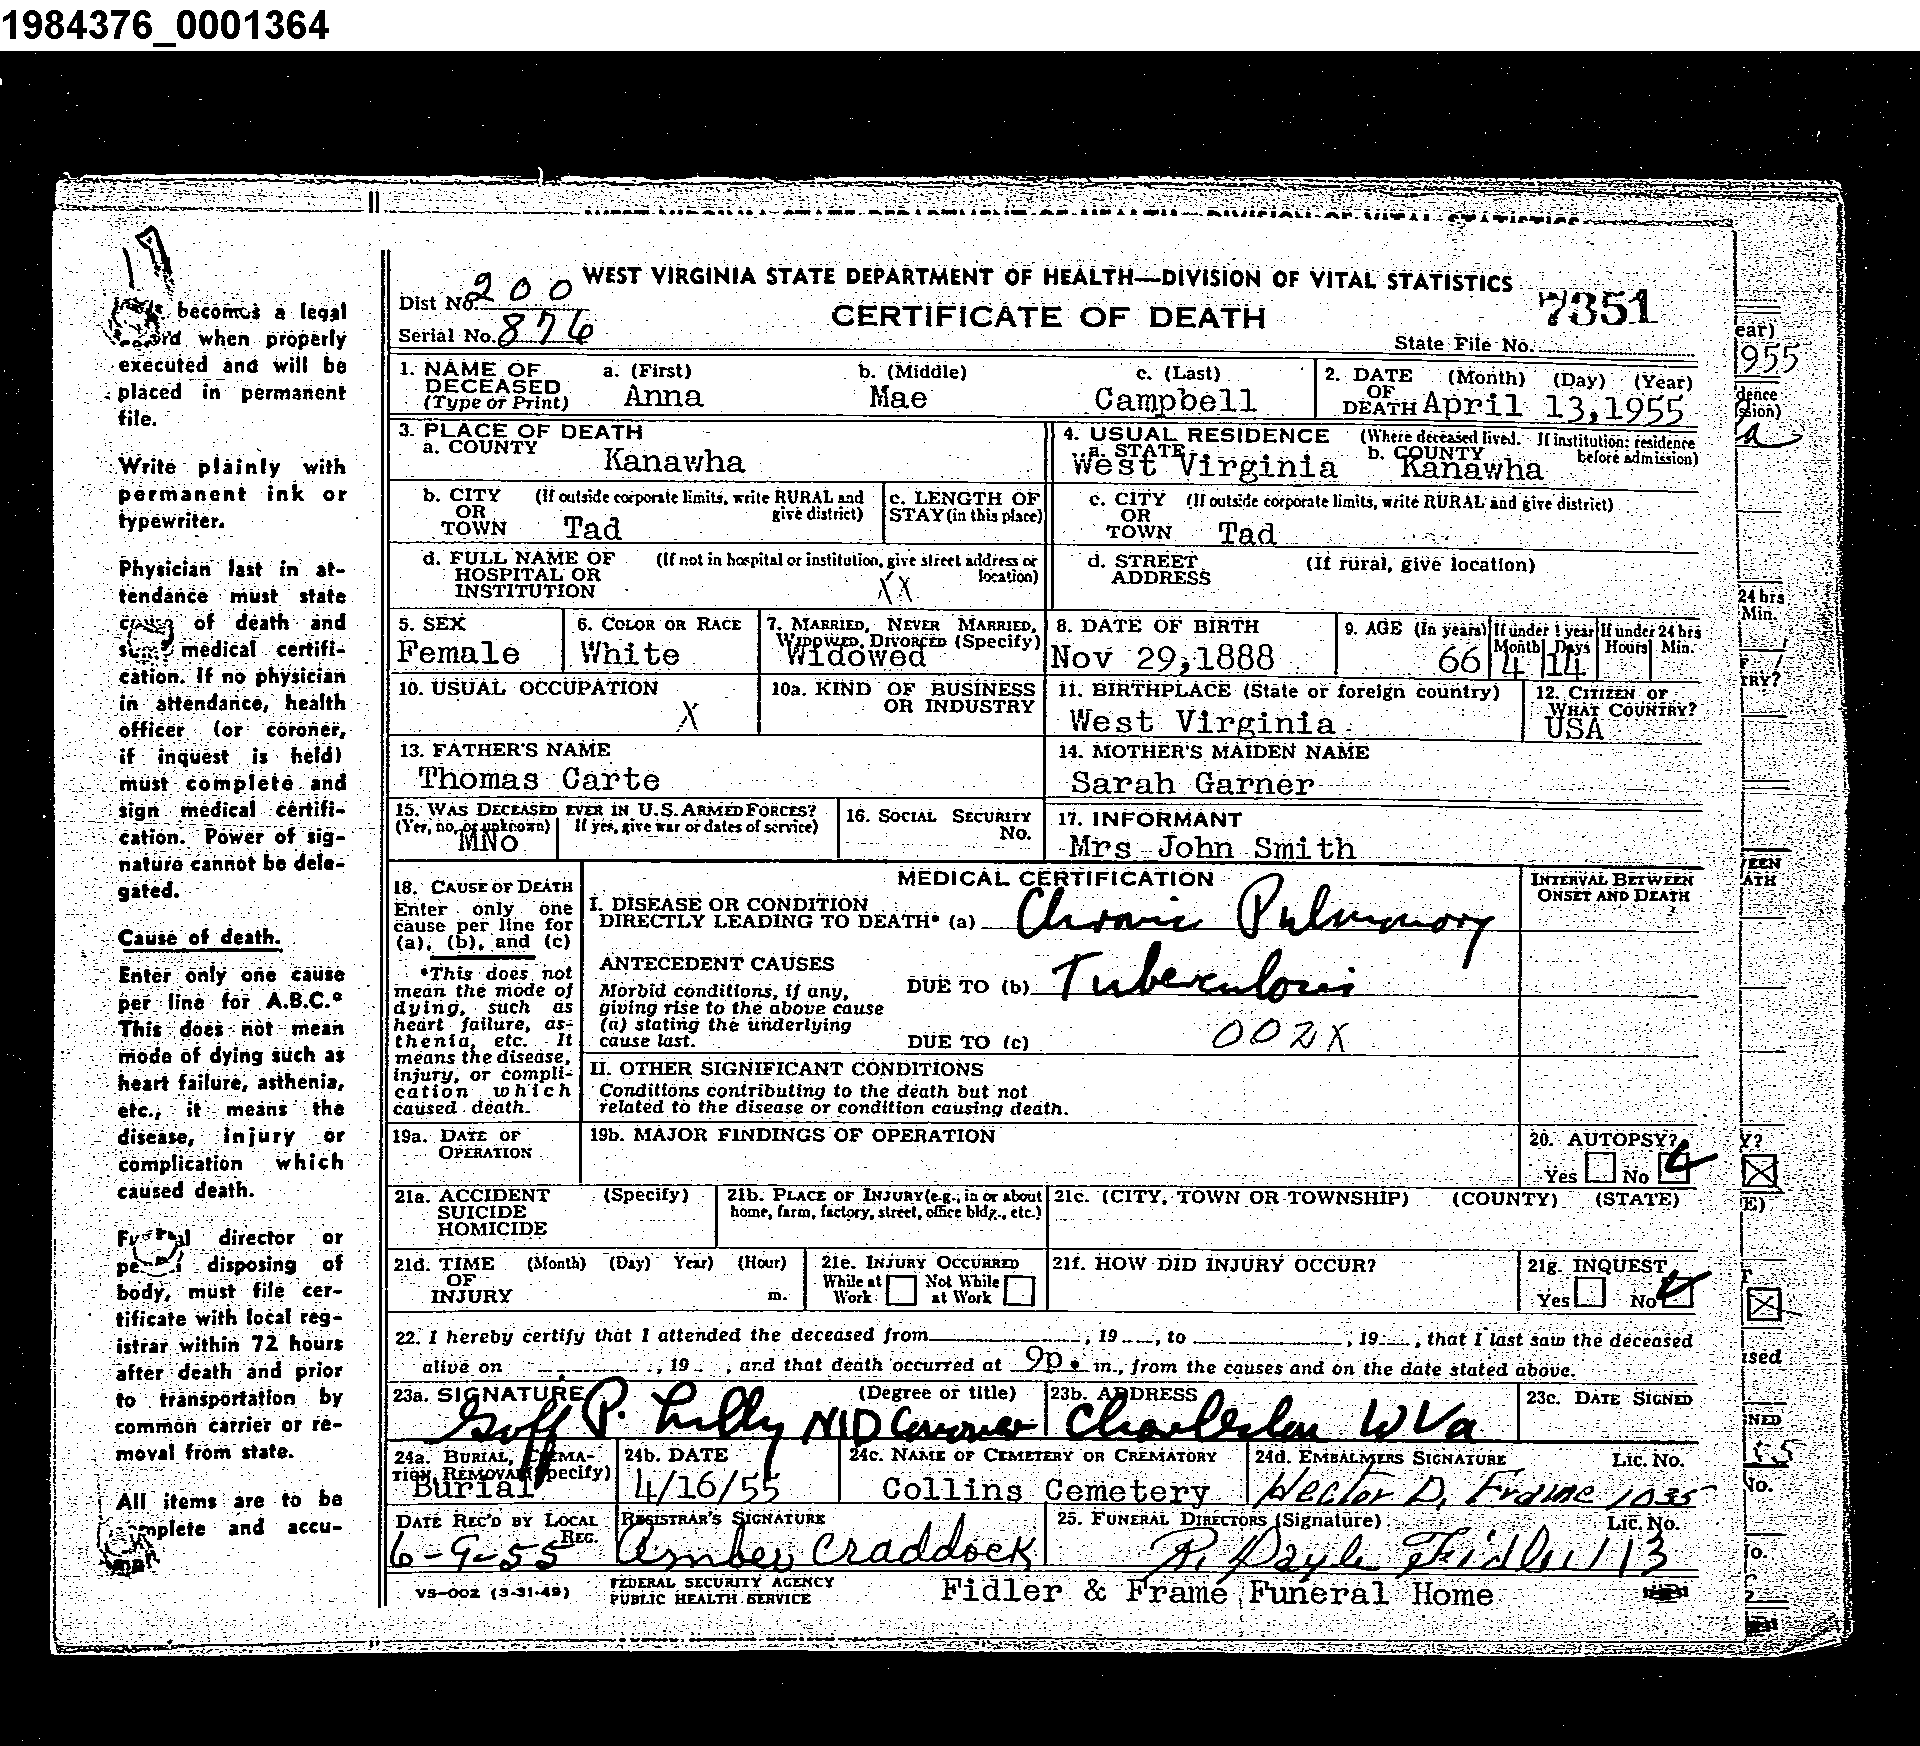 1984376_0001364
WEST VIRGINIA STATE DEPARTMENT OF HEALTH—DIVISION OF VITAL STATISTICS
becomes a legal
when properly
executed and will be
placed in permanent
file.
Write plainly with
permanent ink or
typewriter.
Physician last in at-
tendance must state
of death and
medical certifi-
cation. If no physician
in attendance, health
officer (or coroner,
if inquest is held)
must complete and
sign medical certifi-
cation. Power of sig-
nature cannot be dele-
gated.
Cause of death.
Enter only one cause
per line for A.B.C.*
This does not mean
mode of dying such as
heart failure, asthenia,
etc., it means the
disease, injury or
complication which
caused death.
director or
disposing of
body, must file cer-
tificate with local reg-
istrar within 72 hours
after death and prior
to transportation by
common carrier or re-
moval from state.
All items are to be
complete and accu-
Dist No. 200
Serial No. 876
WEST VIRGINIA STATE DEPARTMENT OF HEALTH—DIVISION OF VITAL STATISTICS
CERTIFICATE OF DEATH
7351
State File No.
1. NAME OF DECEASED (Type or Print) a. (First) Anna b. (Middle) Mae c. (Last) Campbell
2. DATE OF DEATH (Month) (Day) (Year) April 13,1955
3. PLACE OF DEATH
a. COUNTY Kanawha
4. USUAL RESIDENCE (Where deceased lived. If institution: residence before admission)
a. STATE West Virginia b. COUNTY Kanawha
b. CITY OR TOWN (If outside corporate limits, write RURAL and give district) Tad
c. LENGTH OF STAY (in this place)
c. CITY OR TOWN (If outside corporate limits, write RURAL and give district) Tad
d. FULL NAME OF HOSPITAL OR INSTITUTION (If not in hospital or institution, give street address or location) XX
d. STREET ADDRESS (If rural, give location)
5. SEX Female
6. COLOR OR RACE White
7. MARRIED, NEVER MARRIED, WIDOWED, DIVORCED (Specify) Widowed
8. DATE OF BIRTH Nov 29,1888
9. AGE (In years) 66 If under 1 year Month 4 Days 14 If under 24 hrs Hours Min.
10. USUAL OCCUPATION X
10a. KIND OF BUSINESS OR INDUSTRY
11. BIRTHPLACE (State or foreign country) West Virginia
12. CITIZEN OF WHAT COUNTRY? USA
13. FATHER'S NAME Thomas Carte
14. MOTHER'S MAIDEN NAME Sarah Garner
15. WAS DECEASED EVER IN U.S. ARMED FORCES? (Yes, no, or unknown) MNo If yes, give war or dates of service)
16. SOCIAL SECURITY No.
17. INFORMANT Mrs John Smith
18. CAUSE OF DEATH
Enter only one
cause per line for
(a), (b), and (c)
*This does not
mean the mode of
dying, such as
heart failure, as-
thenia, etc. It
means the disease,
injury, or compli-
cation which
caused death.
MEDICAL CERTIFICATION
INTERVAL BETWEEN ONSET AND DEATH
I. DISEASE OR CONDITION
DIRECTLY LEADING TO DEATH* (a) Chronic Pulmonary
ANTECEDENT CAUSES
Morbid conditions, if any,
giving rise to the above cause
(a) stating the underlying
cause last.
DUE TO (b) Tuberculosis
DUE TO (c) 002X
II. OTHER SIGNIFICANT CONDITIONS
Conditions contributing to the death but not
related to the disease or condition causing death.
19a. DATE OF OPERATION
19b. MAJOR FINDINGS OF OPERATION
20. AUTOPSY? Yes No
21a. ACCIDENT SUICIDE HOMICIDE (Specify)
21b. PLACE OF INJURY (e.g., in or about home, farm, factory, street, office bldg., etc.)
21c. (CITY, TOWN OR TOWNSHIP) (COUNTY) (STATE)
21d. TIME OF INJURY (Month) (Day) Year) (Hour) m.
21e. INJURY OCCURRED While at Work Not While at Work
21f. HOW DID INJURY OCCUR?
21g. INQUEST Yes No
22. I hereby certify that I attended the deceased from , 19 , to , 19 , that I last saw the deceased
alive on , 19 , and that death occurred at 9p. m., from the causes and on the date stated above.
23a. SIGNATURE (Degree or title) Goff P. Lilly MD Coroner
23b. ADDRESS Charleston W Va
23c. DATE SIGNED
24a. BURIAL, CREMATION, REMOVAL (Specify) Burial
24b. DATE 4/16/55
24c. NAME OF CEMETERY OR CREMATORY Collins Cemetery
24d. EMBALMERS SIGNATURE Lic. No. Hector D. Frame 1035
DATE REC'D BY LOCAL REG. 6-9-55
REGISTRAR'S SIGNATURE Amber Craddock
25. FUNERAL DIRECTORS (Signature) Lic. No. R. Dayle Fidler 113
VS-002 (3-31-49)
FEDERAL SECURITY AGENCY
PUBLIC HEALTH SERVICE
Fidler & Frame Funeral Home